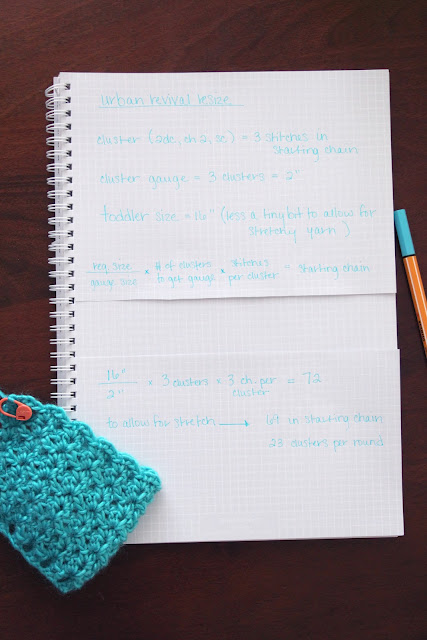 urban revival resize
cluster (2dc, ch 2, sc) = 3 stitches in
starting chain
cluster gauge = 3 clusters = 2"
toddler size = 16" (less a tiny bit to allow for
stretchy yarn)
req. size / gauge size × # of clusters to get gauge × stitches per cluster = starting chain
16" / 2" × 3 clusters × 3 ch. per cluster = 72
to allow for stretch → 69 in starting chain
23 clusters per round